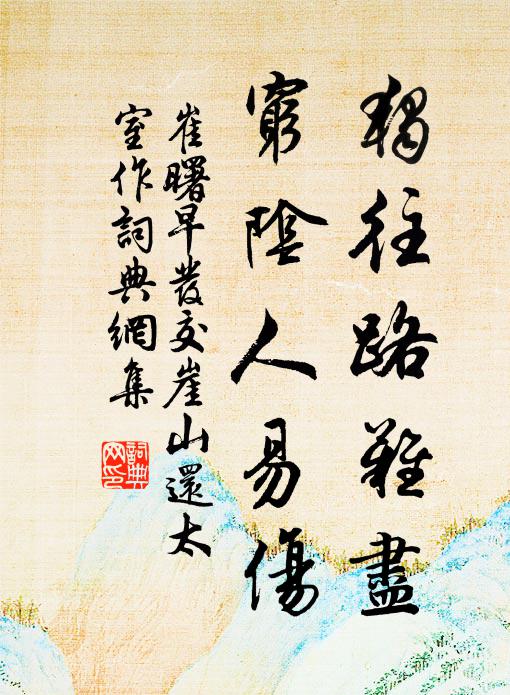 獨往路難盡
窮陰人易傷
崔曙早發交崖山還太
室作詞典網集
詞典
网印